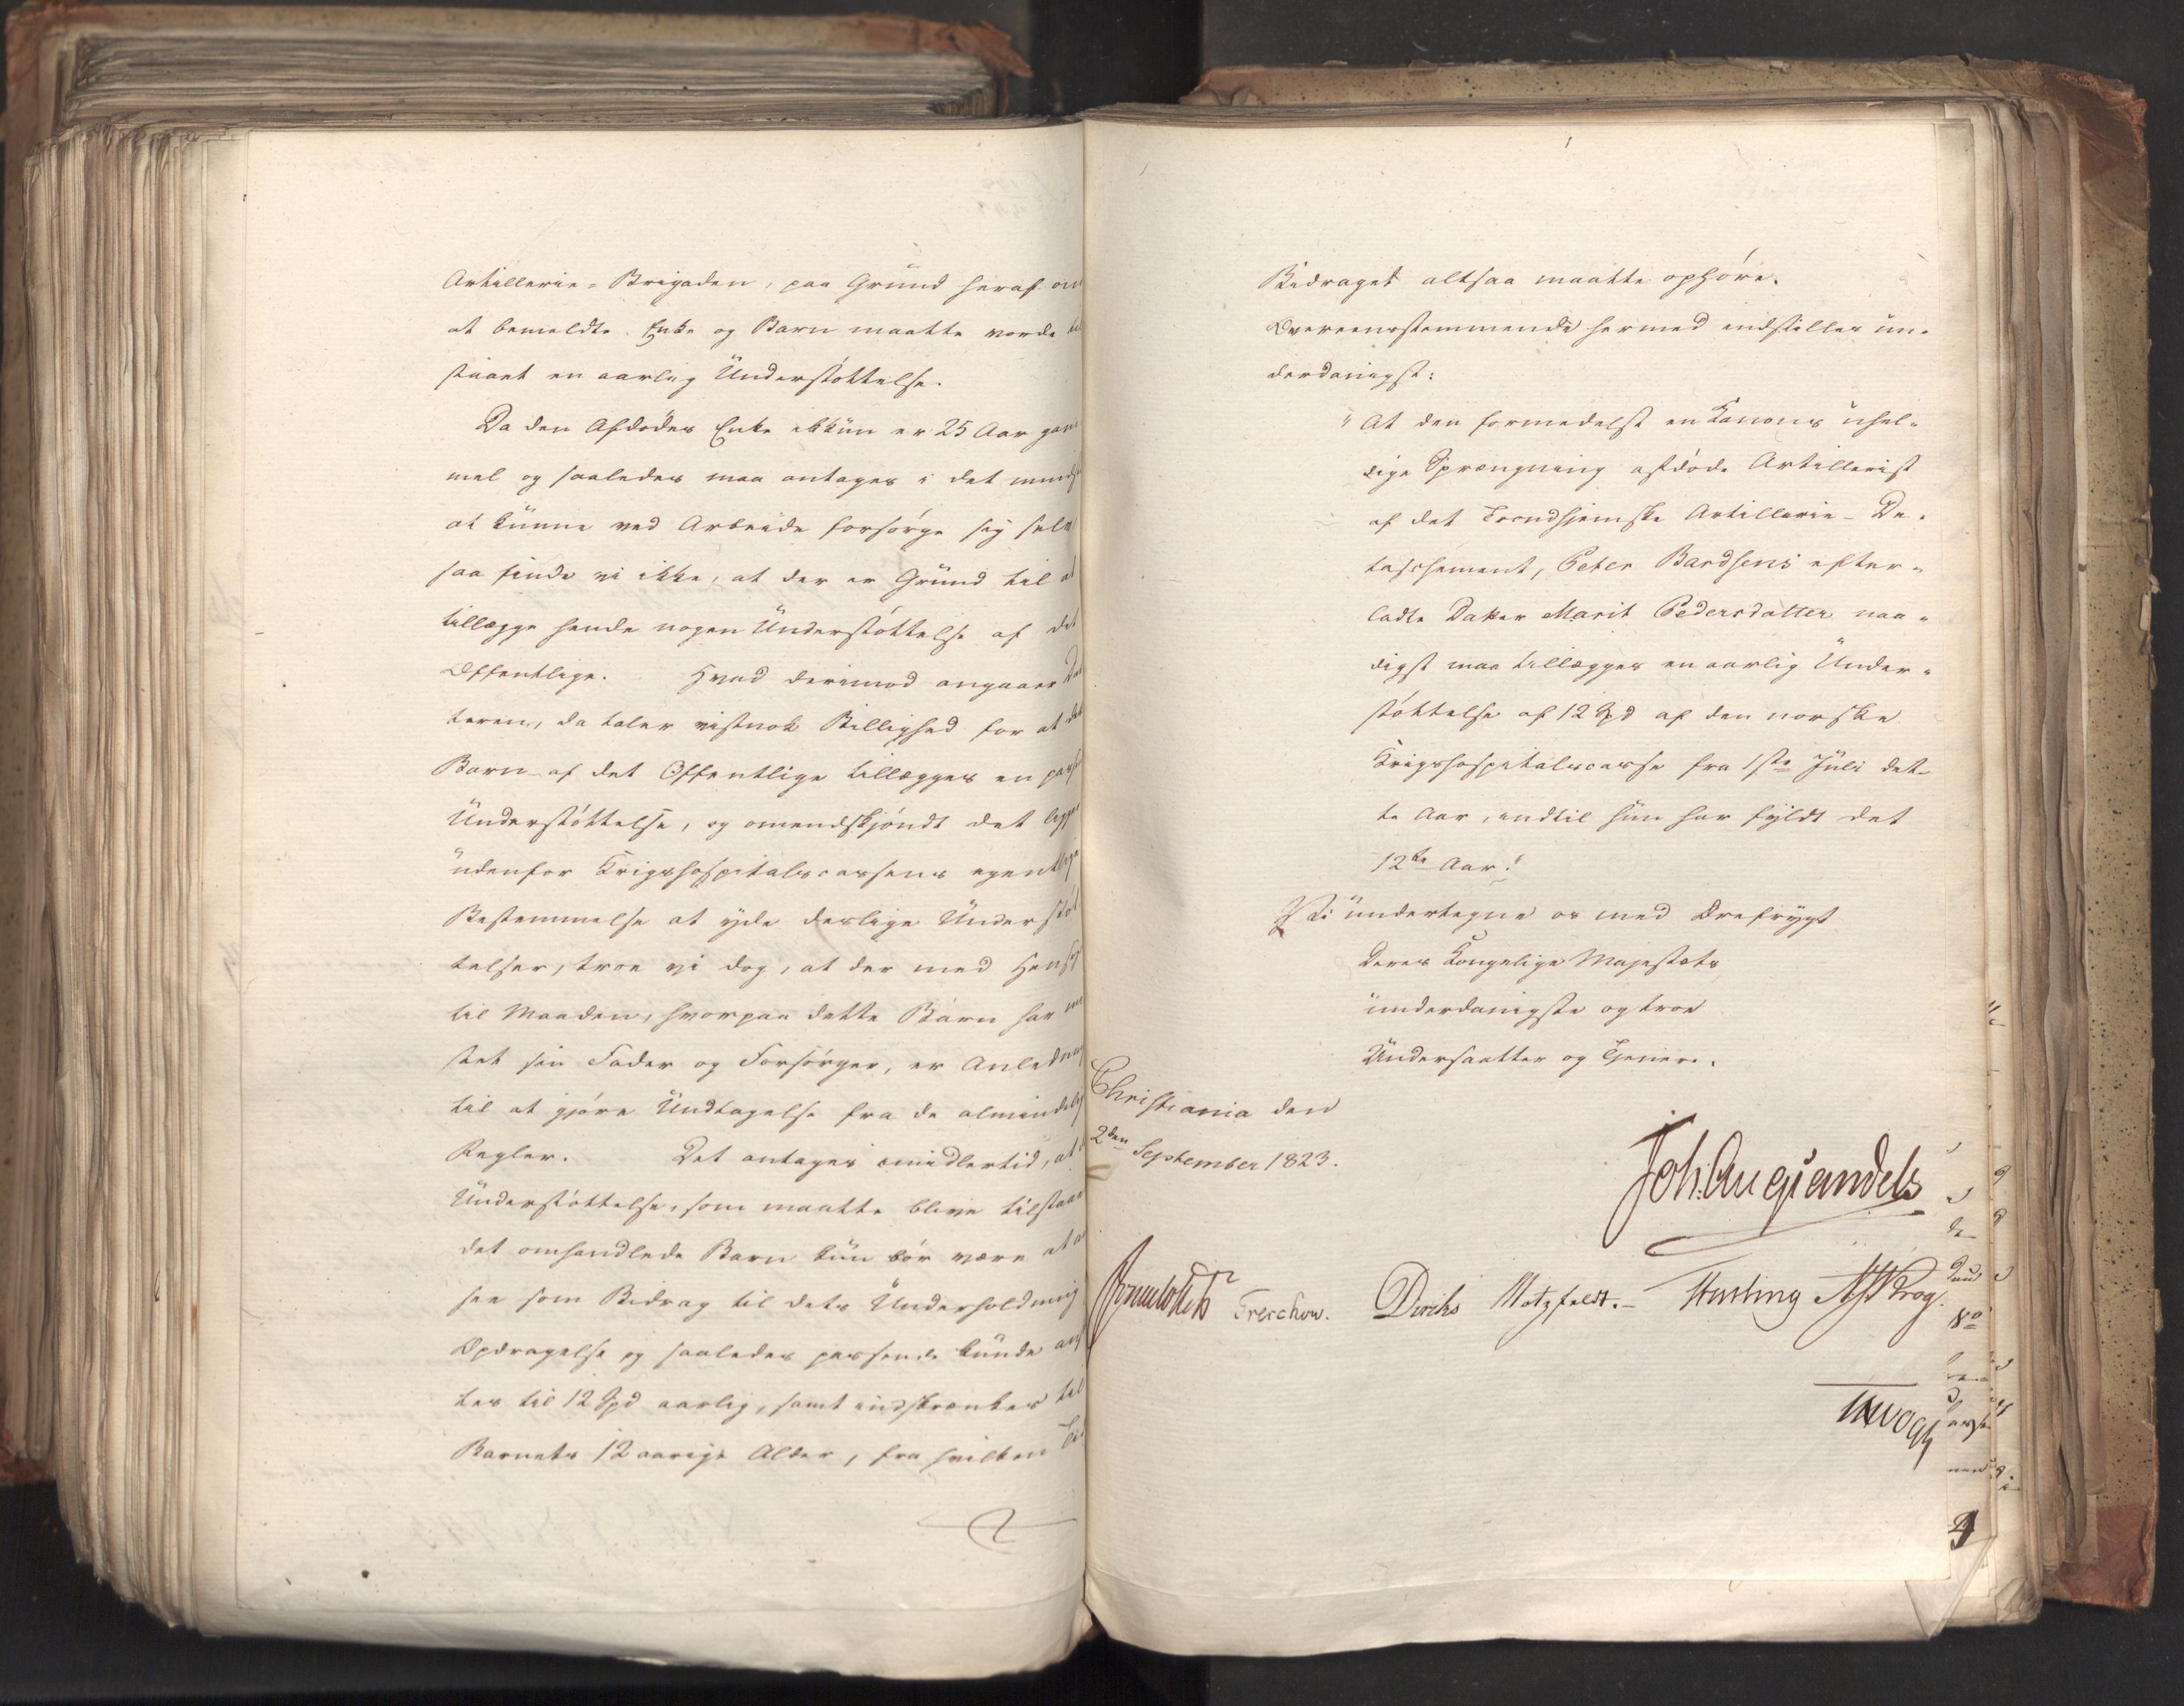 Artillerie-Brigaden, paa Grund heraf om
at bemeldte Enke og Barn maatte vorde til
staaet en aarlig Understøttelse.
Da den Afdødes Enke ikkun er 25 Aar gam
mel og saaledes maa antages i det mindste
at kunne ved Arbeide forsørge sig selv
saa finde vi ikke, at der er Grund til a
tillægge hende nogen Understøttelse af det
Offentlige. Hvad derimod angaaer Dat
teren, da taler vistnok Billighed for at det
Barn af det Offentlige tillægges en pass
Understøttelse, og omendskjøndt det ligger
udenfor Krigshospitalscassens egentlige
Bestemmelse at yde deslige Understøt
telser, troe vi dog, at der med Hensy
til Maaden, hvorpaa dette Barn har mi
stet sin Fader og Forsørger, er Anledning
til at gjøre Undtagelse fra de almindelig
Regler. Det antages imidlertid, at
Understøttelse, som maatte blive tilstaaet
det omhandlede Barn kun bør være at a
see som Bidrag til dets Underholdning
Opdragelse og saaledes passende kunde ans
tes til 12 Spd aarlig, samt indskrænkes til
Barnets 12 aarige Alder, fra hvilken Ti
Bidraget altsaa maatte ophøre.
Overeensstemmende hermed indstilles un-
derdanigst:
"At den formedelst en Kanons uhel-
dige Sprængning afdøde Artillerist
af det Trondhjemske Artillerie-De-
taschement, Peter Bardsens efter-
ladte Datter Marit Pedersdatter naa-
digst maa tillægges en aarlig Under-
støttelse af 12 Spd af den norske
Krigshospitalscasse fra 1ste Juli det-
te Aar, indtil hun har fyldt det
12te Aar."
Vi undertegne os med Ærefrygt
Deres Kongelige Majestæts
underdanigste og troe
Undersaatter og Tjenere.
Christiania den
2den September 1823.
Joh. Aug Sandels
Sommerhielm Treschow. Diriks Motzfeldt. Fasting AJKrog.
UWogh